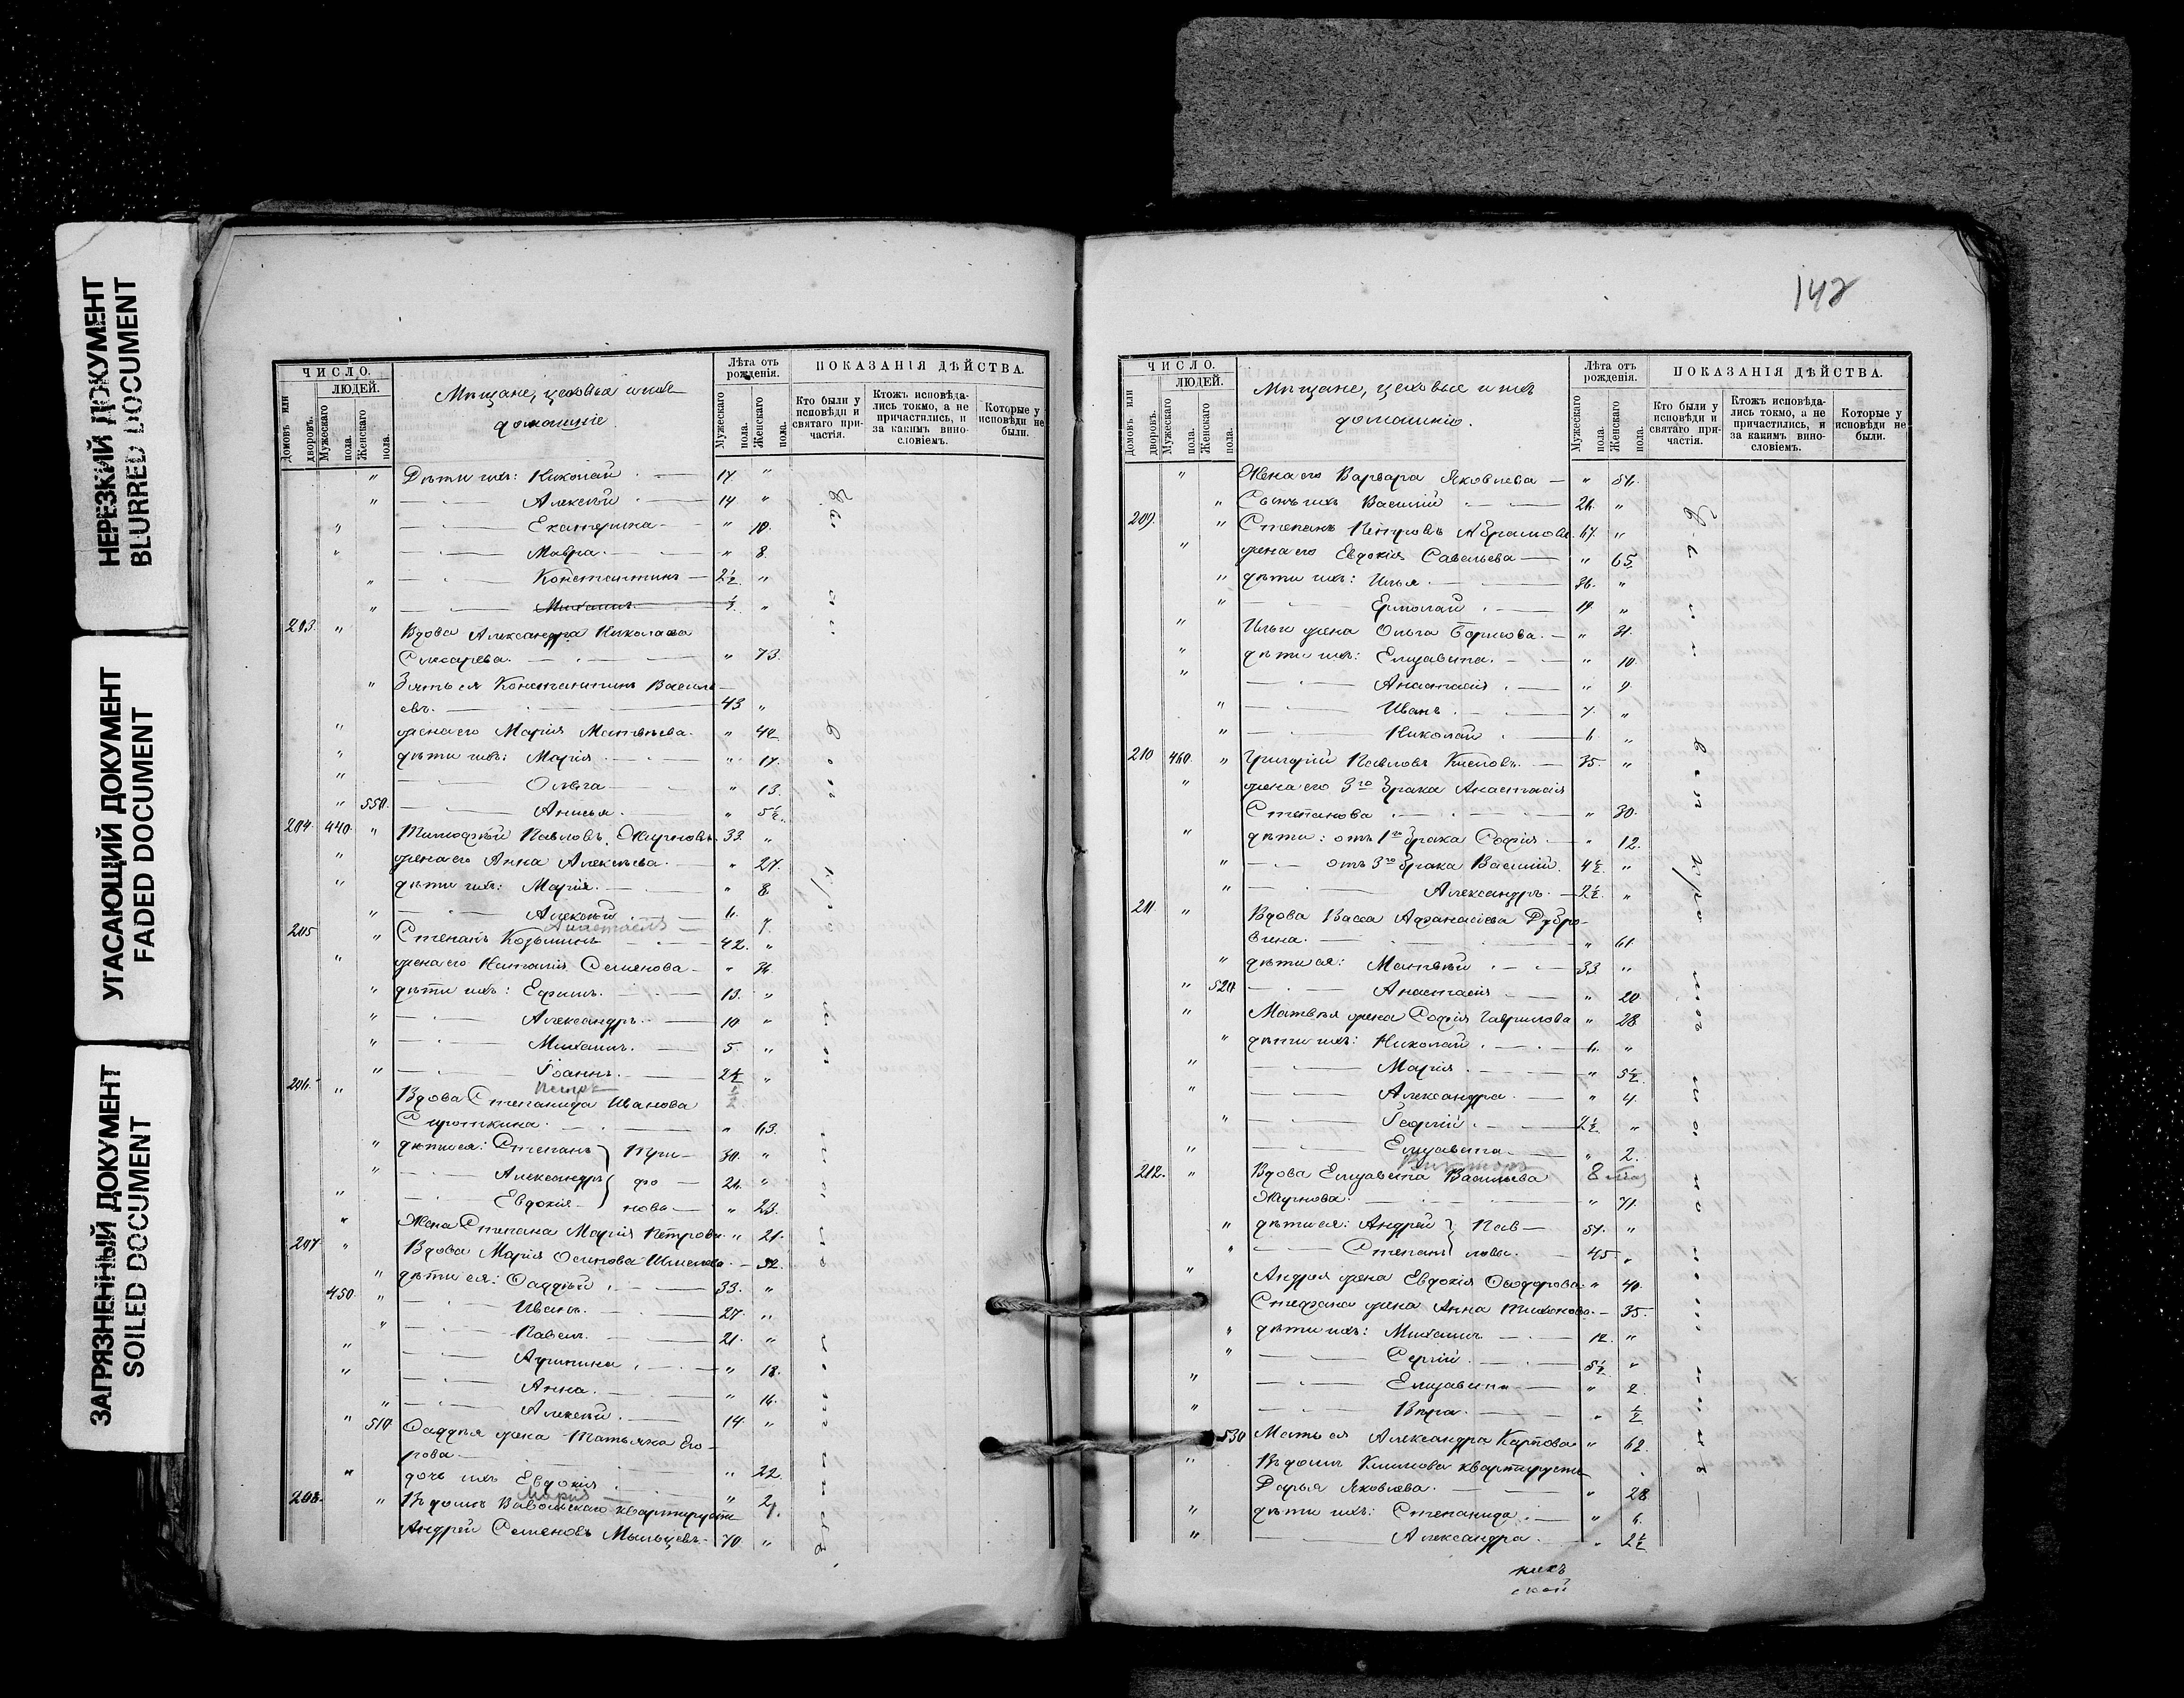 НЕРЕЗКИЙ ДОКУМЕНТ
BLURRED DOCUMENT
УГАСАЮЩИЙ ДОКУМЕНТ
FADED DOCUMENT
ЗАГРЯЗНЕННЫЙ ДОКУМЕНТ
SOILED DOCUMENT
ЧИСЛО.
ЛЮДЕЙ.
Домовъ или дворовъ.
Мужескаго пола.
Женскаго пола.
Мѣщане, цеховые и ихъ
домашніе.
Лѣта отъ рожденія.
Мужескаго пола.
Женскаго пола.
ПОКАЗАНІЯ ДѢЙСТВА.
Кто были у исповѣди и святаго причастія.
Ктожъ исповѣдались токмо, а не причастились, и за какимъ винословіемъ.
Которые у исповѣди не были.
" Дѣти ихъ: Николай 17. "
" Алексѣй 14. "
" Екатерина " 10.
" Мавра " 8.
" Константинъ 2½ "
" Михаилъ "
203. " Вдова Александра Николаева
Слесарева. " 73.
" Зять ея Константинъ Василь
евъ. 43 "
" жена его Марія Матвѣева. " 42
" дѣти ихъ: Марія " 17.
" Ольга " 13.
" 550. Анисья. " 5½.
204. 440. " Тимофей Павловъ 33. "
" жена его Анна Алексѣева. " 27.
" дѣти ихъ: Марія. " 8.
" Алексѣй 6.
Анастасія
205 " Степанъ Козьминъ 42. "
" жена его Наталія Семенова " 36.
" дѣти ихъ: Ефимъ. 13. "
" Александръ 10 "
" Михаилъ. 5. "
" Іоаннъ. 2½ "
Петръ ½
206. " Вдова Степанида Иванова
Сироткина. " 63.
" дѣти ея: Степанъ } Три 30. "
" Александръ } фо "
" Евдокія } нова " 23.
" Жена Степана Марія Петрова. " 21.
207 " Вдова Марія Осипова 52.
" дѣти ея: Ѳаддей 33. "
450. " Иванъ. 27. "
" Павелъ. 21. "
" Агрипина " 18.
" Анна. " 16.
" Алексѣй. 14. "
" 510 Ѳаддея жена Татьяна Его-
рова. " 22.
" дочь ихъ Евдокія "
Марія
208. " Въ домѣ квартируетъ
Андрей Семеновъ Мыльцевъ. 70. "
142
ЧИСЛО.
ЛЮДЕЙ.
Домовъ или дворовъ.
Мужескаго пола.
Женскаго пола.
Мѣщане, цеховые и ихъ
домашніе.
Лѣта отъ рожденія.
Мужескаго пола.
Женскаго пола.
ПОКАЗАНІЯ ДѢЙСТВА.
Кто были у исповѣди и святаго причастія.
Ктожъ исповѣдались токмо, а не причастились, и за какимъ винословіемъ.
Которые у исповѣди не были.
" Жена его Варвара Яковлева "
" Сынъ ихъ Василій "
209. " Степанъ Петровъ Абрамовъ. 67. "
" жена его Евдокія Савельева " 65.
" дѣти ихъ: Илья. 36. "
" Ермолай "
" Ильи жена Ольга Борисова. " 31.
" дѣти ихъ: Елизавета. " 10.
" Анастасія " 9.
" Иванъ 7. "
" Николай 6. "
210 460. " Григорій Павловъ 35. "
" жена его 3го брака Анастасія
Степанова " 30.
" дѣти: отъ 1го брака Софія " 12.
" отъ 3го брака Василій. 4½. "
" Александръ. 2½. "
211. " Вдова Васса Афанасіева Дубро-
вина. " 61.
" дѣти ея: Матвѣй 33 "
" 520. Анастасія " 20
" Матвѣя жена Софія Гаврилова " 28
" дѣти ихъ: Николай 6. "
" Марія " 5½.
" Александра " 4.
" Георгій 2½. "
" Елизавета " 2.
Викторъ 8
212. " Вдова Елизавета Васильева
" 71.
" дѣти ея: Андрей } Пав "
" Степанъ } ловы. 45 "
" Андрея жена Евдокія Ѳеодорова " 40.
Стефана жена Анна 35.
" дѣти ихъ: Михаилъ 12. "
" Сергій. 5½ "
" Елизавета " 2.
" Вѣра. " ½
530 Мать ея Александра Карпова " 62.
" Въ домѣ Климова квартируетъ
Дарья Яковлева. " 28
" дѣти ихъ: Степанида " 6.
" Александра. " 2½